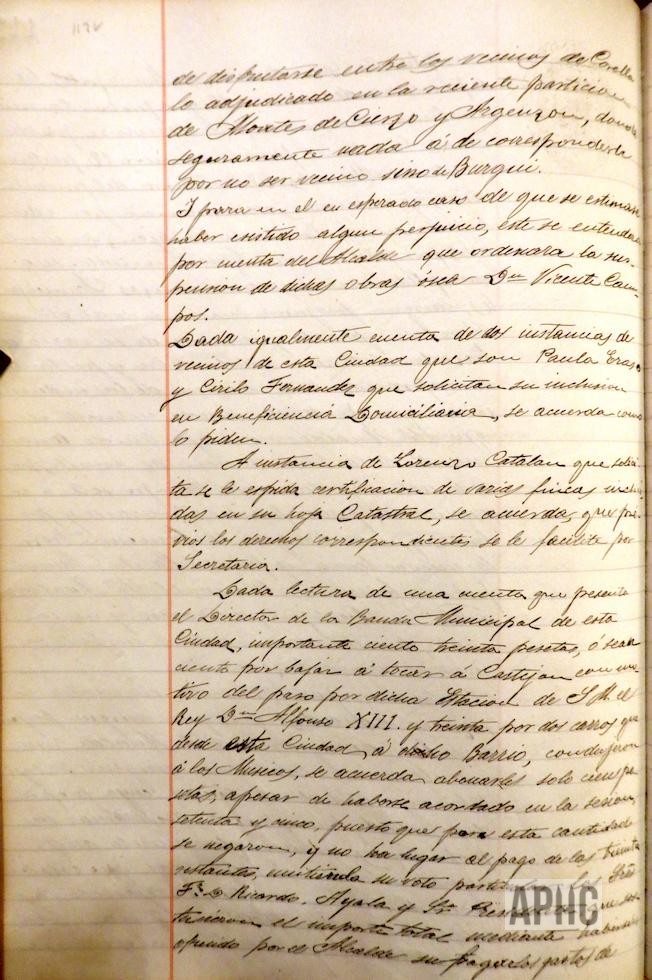 de disfrutarse entre los vecinos de Corella
lo adjudicado en la reciente particion
de Montes de Cierzo y Argenzon, donde
seguramente nada á de corresponderle
por no ser vecino sino de Burgui.
Y para en el en esperado caso de que se estimase
haber existido algun perjuicio, este se entendera
por cuenta del Alcalde que ordenara la sus-
pension de dichas obras ósea Dn Vicente Cam-
pos.
Dada igualmente cuenta de dos instancias de
vecinos de esta Ciudad que son Paula Eraso
y Cirilo Fernandez que solicitan su inclusion
en Beneficiencia Domiciliaria, se acuerda como
lo piden.
A instancia de Lorenzo Catalan que solici-
ta se le espida certificacion de varias fincas inclui-
das en su hoja Catastral, se acuerda, que pre-
vios los derechos correspondientes se le facilite por
Secretaria.
Dada lectura de una cuenta que presenta
el Director de la Banda Municipal de esta
Ciudad, importante ciento treinta pesetas, ó sean
ciento por bajar á tocar á Castejon con mo-
tivo del paso por dicha Estacion de S. M. el
Rey Dn Alfonso XIII. y treinta por dos carros que
desde esta Ciudad á dicho Barrio, condujeron
á los Musicos, se acuerda abonarles solo cien pe-
setas, apesar de haberse acordado en la sesion,
setenta y cinco, puesto que por esta cantidad
se negaron, y no ha lugar al pago de las treinta
restantes, emitiendo su voto particular los Sres
Dn Ricardo Ayala y Sr. que sos-
tuvieron el importe total mediante haberse
ofrecido por el Alcalde su pagarlos gastos de
APHC